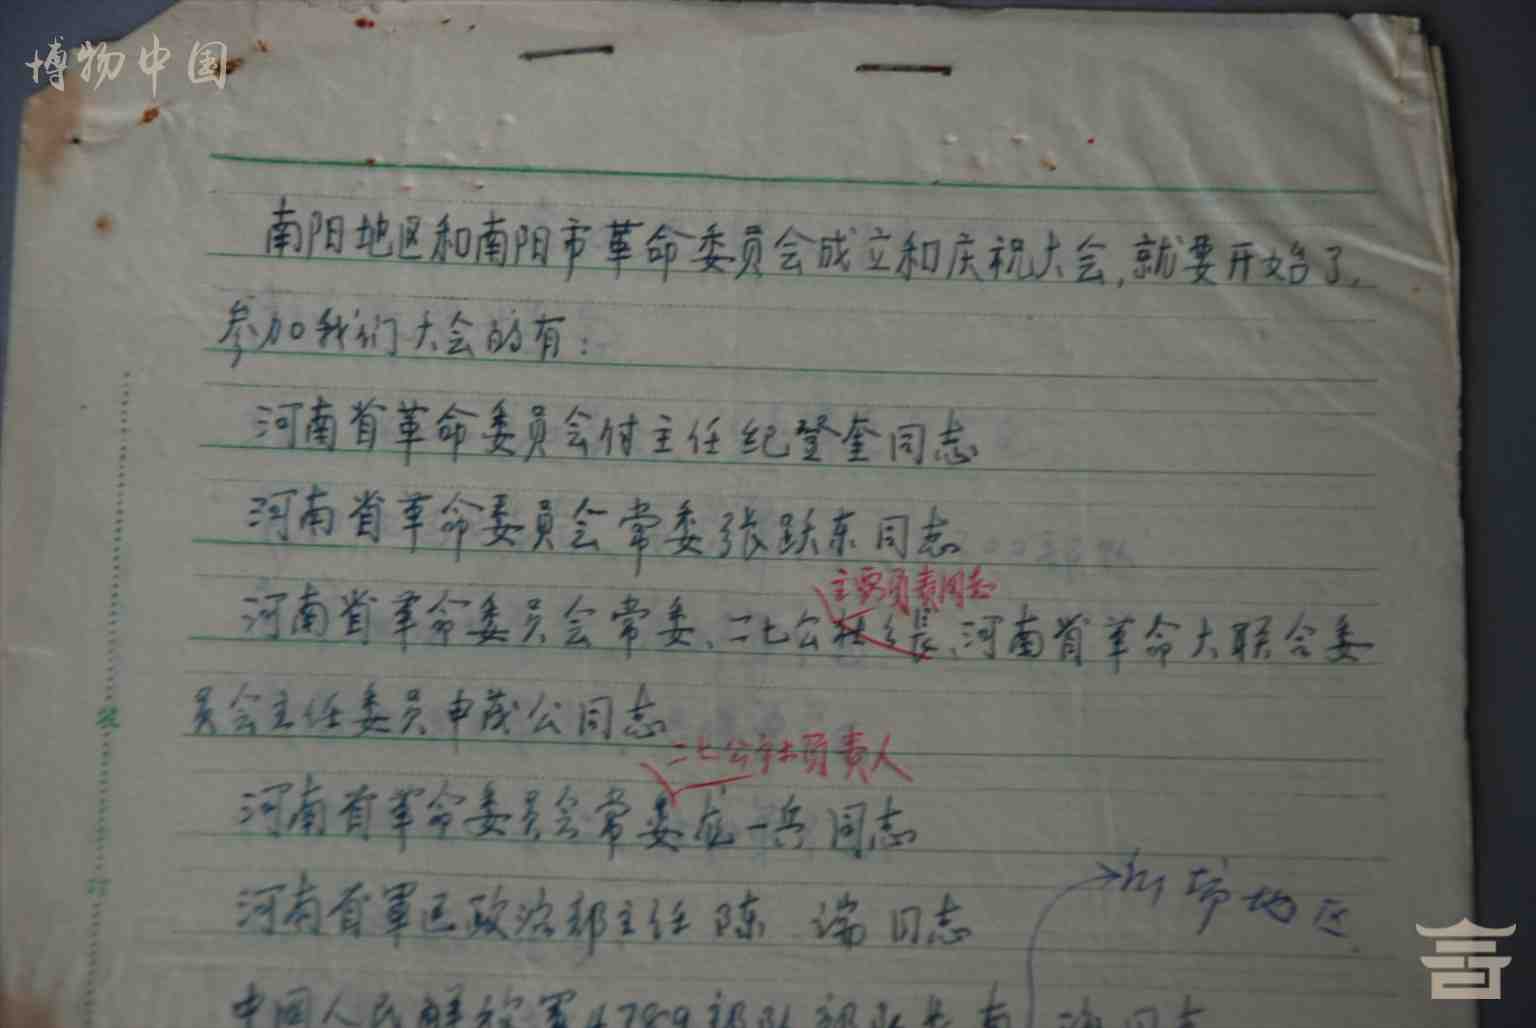 博物中国
南阳地区和南阳市革命委员会成立和庆祝大会,就要开始了,
参加我们大会的有:
河南省革命委员会付主任纪登奎同志
河南省革命委员会常委张跃东同志
主要负责同志
河南省革命委员会常委、二七公社长、河南省革命大联合委
员会主任委员申茂公同志
二七公社负责人
河南省革命委员会常委 一兵同志
河南省军区政治部主任陈 端同志
地区
中国人民解放军 部队部队长 同志